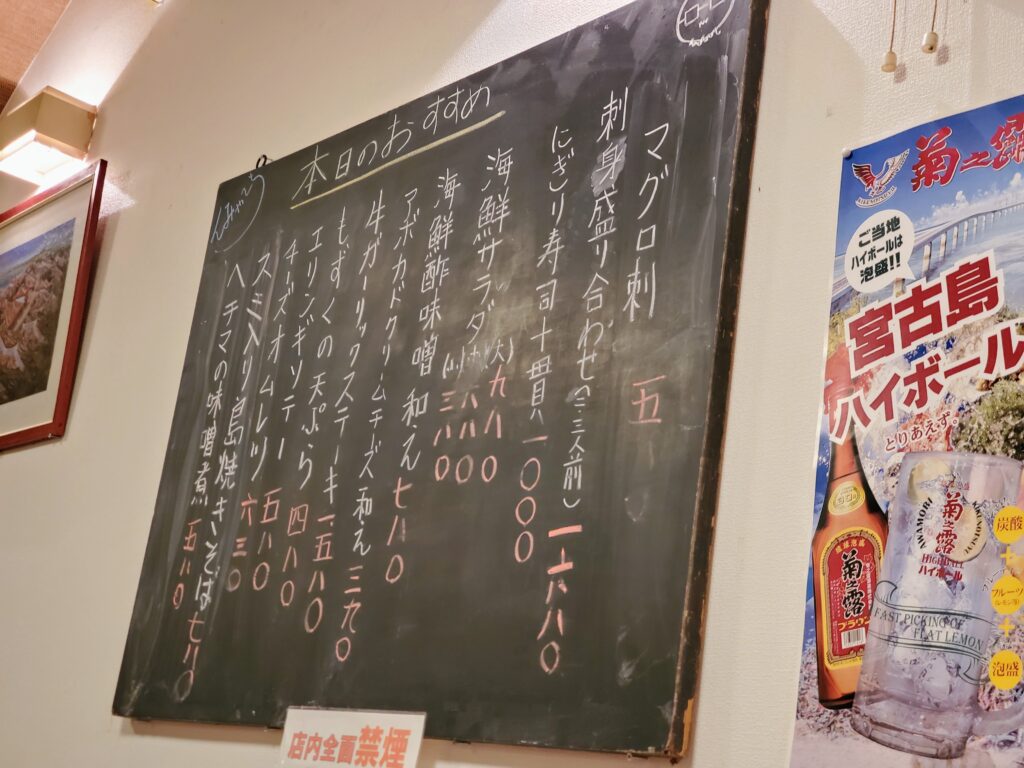 本日のおすすめ
マグロ刺 五
刺身盛り合わせ(二、三人前) 一六八〇
にぎり寿司十貫 一〇〇〇
海鮮サラダ 大 九八〇
海鮮酢味噌和え 七八〇
アボカドクリームチーズ和え 三九〇
牛ガーリックステーキ 一五八〇
もずくの天ぷら 四八〇
エリンギソテー 五八〇
チーズオムレツ 六三〇
スミ入り島焼きそば 七八〇
ヘチマの味噌煮 五八〇
店内全面禁煙
菊之露
ご当地
ハイボールは
泡盛!!
宮古島
ハイボール
とりあえず。
菊之露
ブラウン
菊之露
HIGHBALL
ハイボール
FAST PICKING OF
FLAT LEMON
炭酸
+
フルーツ
+
泡盛